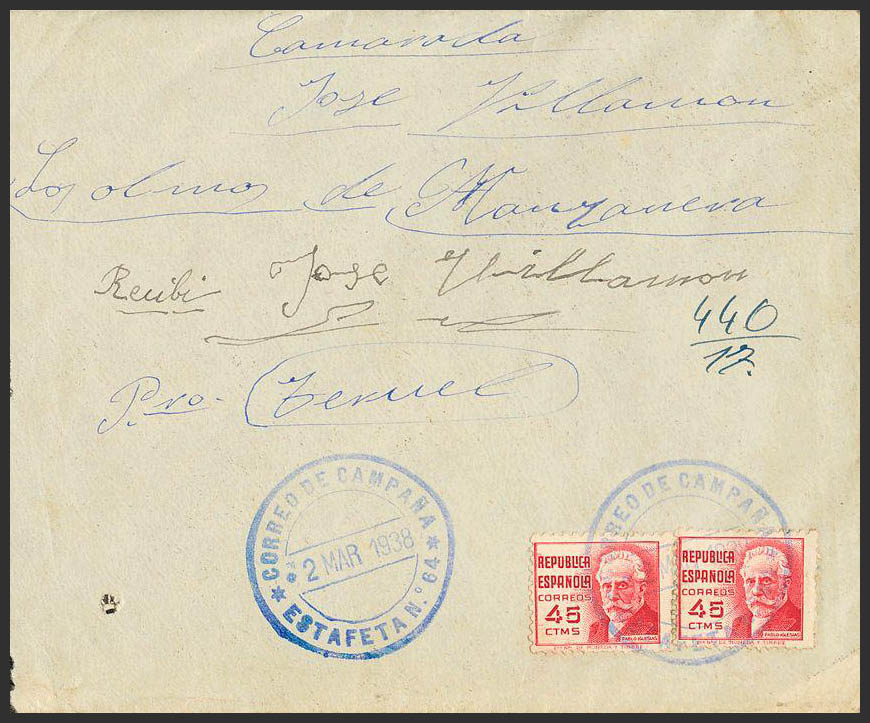 Camarada
Jose Villamon
Los olmos de Manzanera
Recibi Jose Villamon
440
17.
Pro. Teruel
CORREO DE CAMPAÑA
2 MAR 1938
ESTAFETA N.º 64
CORREO DE CAMPAÑA
REPUBLICA
ESPAÑOLA
CORREOS
45
CTMS
PABLO IGLESIAS
REPUBLICA
ESPAÑOLA
CORREOS
45
CTMS
PABLO IGLESIAS